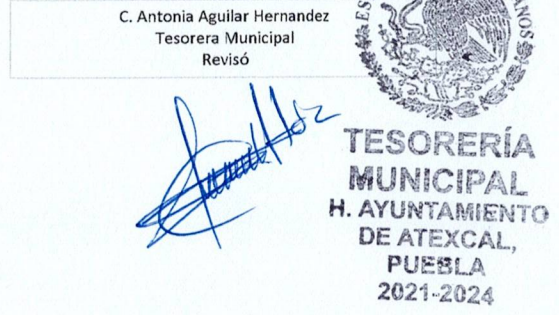 C. Antonia Aguilar Hernandez
Tesorera Municipal
Revisó
TESORERÍA
MUNICIPAL
H. AYUNTAMIENTO
DE ATEXCAL,
PUEBLA
2021-2024